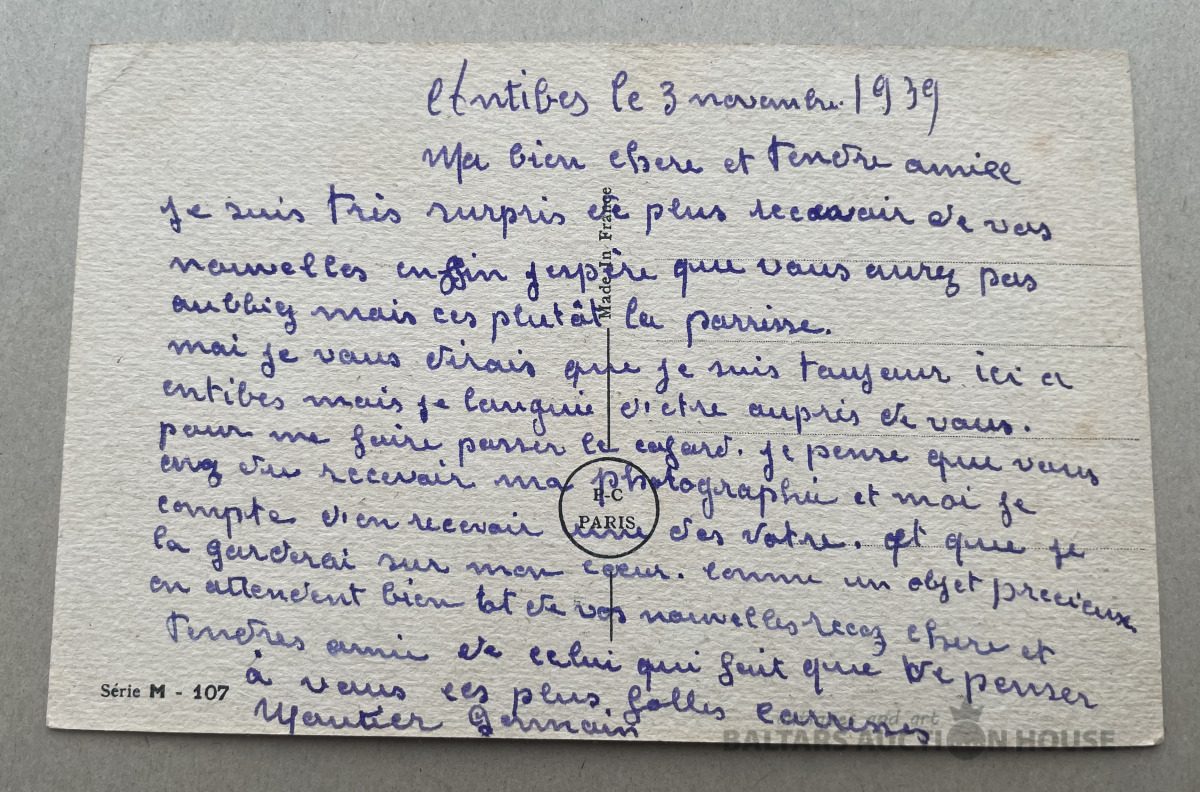 Antibes le 3 novembre 1939
Ma bien chere et tendre amiee
je suis très surpris de plus recevoir de vos
nouvelles enfin j'espère que vous aurez pas
oubbiez mais ces plutôt la parrisse.
moi je vous dirais que je suis toujour ici a
entibes mais je languie d'etre auprès de vous.
pour me faire passer le cafard. je pense que vous
avez du recevoir ma photographie et moi je
compte d'en recevoir une des votre. et que je
la garderai sur mon coeur. comme un objet precieux
en attendent bien tot de vos nouvelles recez chere et
tendres amie de celui qui fait que de penser
à vous ces plus folles carresses
Germain
Made In France
P-C
PARIS
Série M - 107
BALTARS AUCTION HOUSE